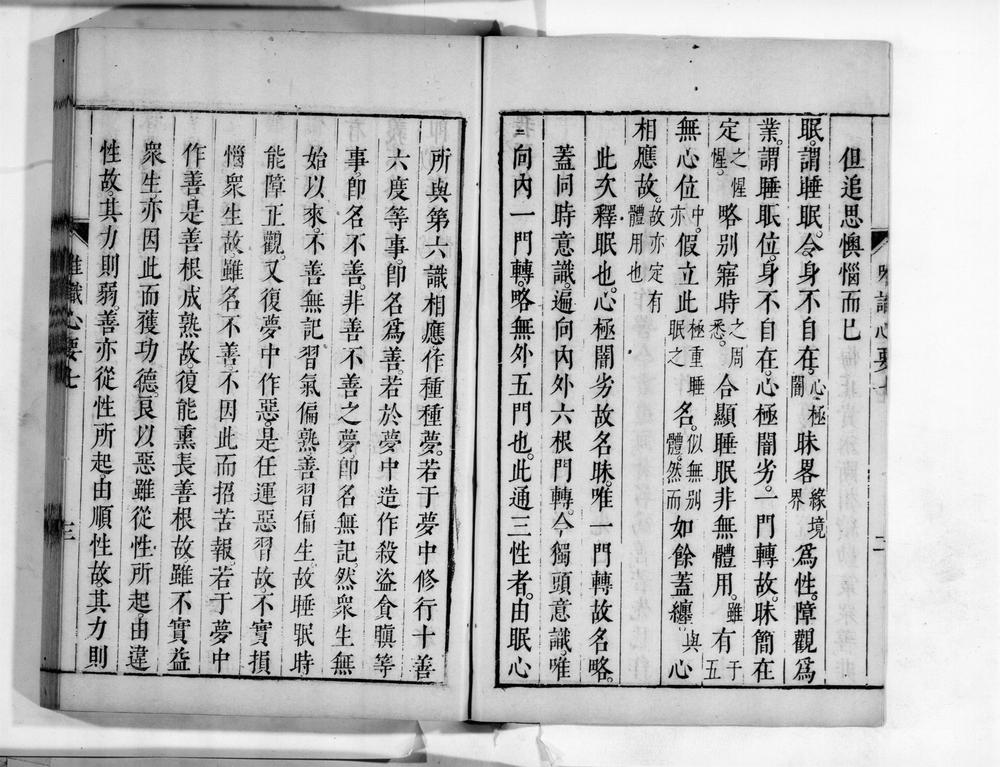 但追思懊惱而巳
眠。謂睡眠。令身不自在。心極闇昧畧緣境界為性。障觀為
業。謂睡眠位。身不自在。心極闇劣。一門轉故。昧簡在
定之惺惺。略別寤時之周悉。合顯睡眠非無體用。雖有于五
無心位中亦假立此極重睡眠之名。似無別體。然而如餘蓋纏。與心
相應故。故亦定有體用也
此次釋眠也。心極闇劣故名昧。唯一門轉故名略。
蓋同時意識。遍向內外六根門轉。今獨頭意識。唯
向內一門轉。略無外五門也。此通三性者。由眠心
唯識心要七 二
所與第六識相應。作種種夢。若于夢中修行十善
六度等事。卽名爲善。若於夢中造作殺盜貪瞋等
事。卽名不善。非善不善之夢。卽名無記。然衆生無
始以來。不善無記習氣偏熟。善習偏生。故睡眠時
能障正觀。又復夢中作惡。是任運惡習故。不實損
惱衆生故。雖名不善。不因此而招苦報。若于夢中
作善。是善根成熟故。復能熏長善根故。雖不實益
衆生。亦因此而獲功德。良以惡雖從性所起。由違
性故。其力則弱。善亦從性所起。由順性故。其力則
唯識心要七 三